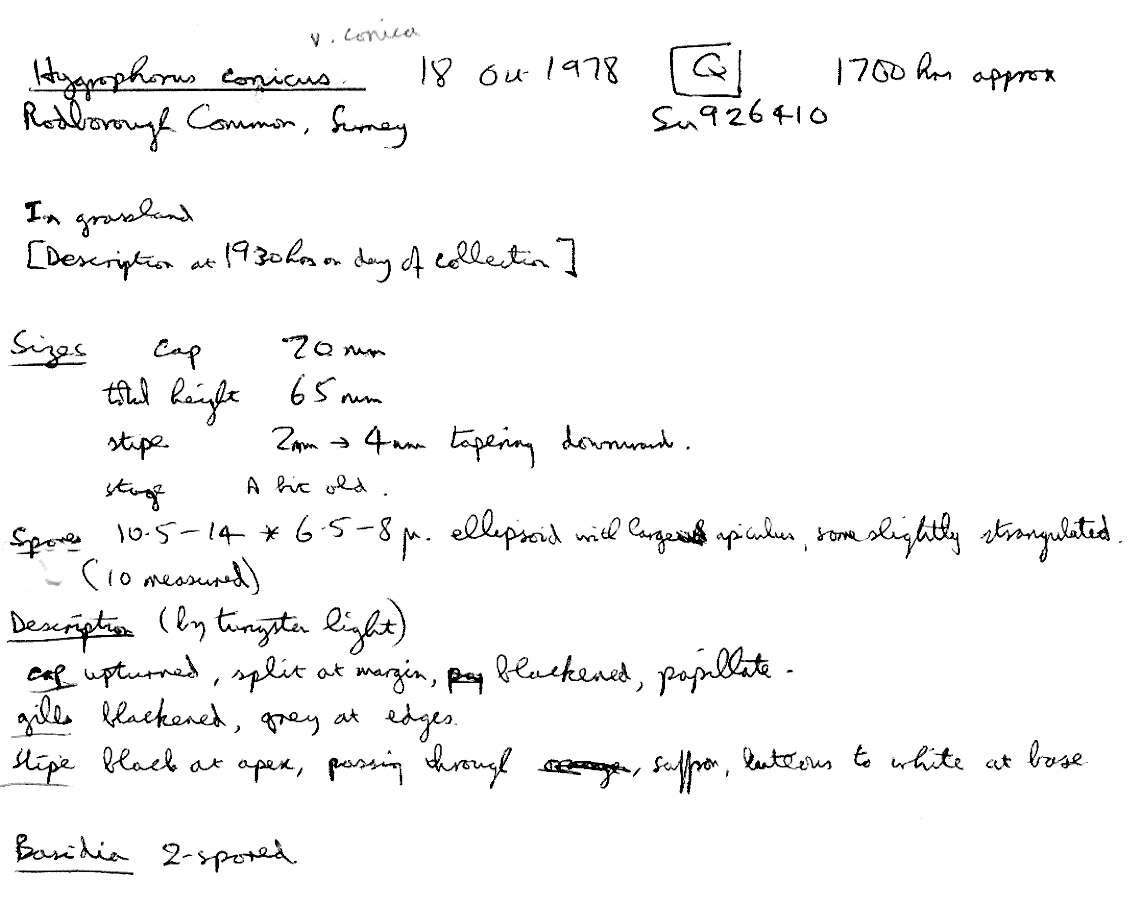 v. conica
Hygrophorus conicus. 18 Oct 1978 Q 1700 hrs approx
Rodborough Common, Surrey Su 926410
In grassland
[Description at 1930 hrs on day of collection]
Sizes cap 20 mm
total height 65 mm
stipe 2mm → 4mm tapering downward.
stage A bit old.
Spores 10.5-14 * 6.5-8 μ. ellipsoid with large apiculus, some slightly strangulated.
(10 measured)
Description (by tungsten light)
cap upturned, split at margin, blackened, papillate.
gills blackened, grey at edges.
stipe black at apex, passing through orange, saffron, luteous to white at base
Basidia 2-spored.